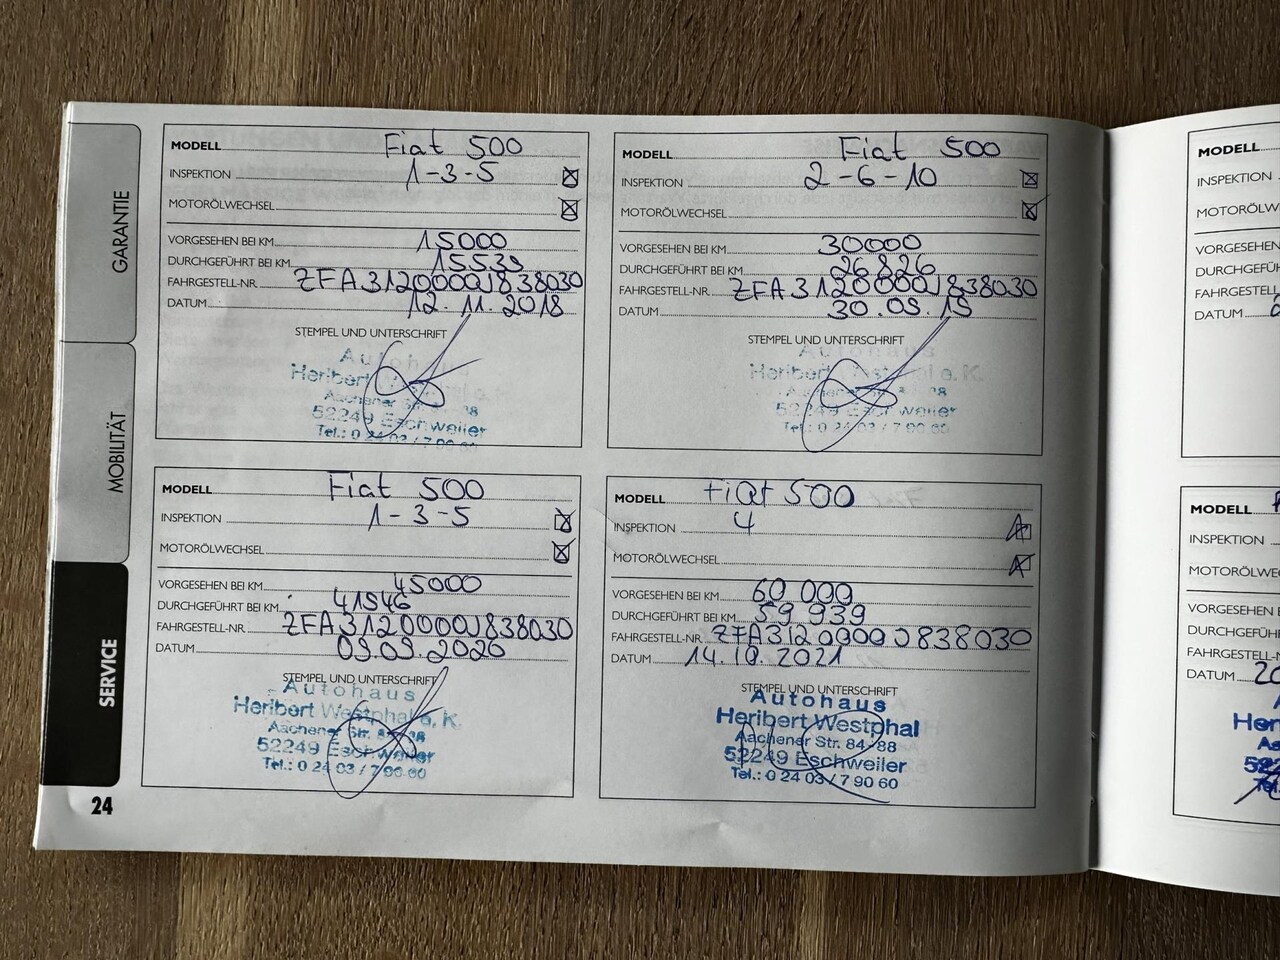 GARANTIE
MOBILITÄT
SERVICE
24
MODELL Fiat 500
INSPEKTION 1-3-5
MOTORÖLWECHSEL
VORGESEHEN BEI KM 15000
DURCHGEFÜHRT BEI KM 15539
FAHRGESTELL-NR. ZFA3120000J838030
DATUM 12.11.2018
STEMPEL UND UNTERSCHRIFT
Autohaus
Heribert
Aachener Str. 88
52249 Eschweiler
Tel.: 0 24 03 / 7 90 60
MODELL Fiat 500
INSPEKTION 2-6-10
MOTORÖLWECHSEL
VORGESEHEN BEI KM 30000
DURCHGEFÜHRT BEI KM 26826
FAHRGESTELL-NR. ZFA3120000J838030
DATUM 30.09.19
STEMPEL UND UNTERSCHRIFT
Autohaus
Heribert Westphal e. K.
Aachener 88
52249 Eschweiler
Tel.: 0 24 03 / 7 90 60
MODELL Fiat 500
INSPEKTION 1-3-5
MOTORÖLWECHSEL
VORGESEHEN BEI KM 45000
DURCHGEFÜHRT BEI KM 41546
FAHRGESTELL-NR. ZFA3120000J838030
DATUM 09.09.2020
STEMPEL UND UNTERSCHRIFT
Autohaus
Heribert Westphal e. K.
Aachener Str. 84-88
52249 Eschweiler
Tel.: 0 24 03 / 7 90 60
MODELL Fiat 500
INSPEKTION 4
MOTORÖLWECHSEL
VORGESEHEN BEI KM 60 000
DURCHGEFÜHRT BEI KM 59 939
FAHRGESTELL-NR. ZFA3120000J838030
DATUM 14.10.2021
STEMPEL UND UNTERSCHRIFT
Autohaus
Heribert Westphal
Aachener Str. 84-88
52249 Eschweiler
Tel.: 0 24 03 / 7 90 60
MODELL
INSPEKTION
MOTORÖLW
VORGESEHEN
DURCHGEFÜH
FAHRGESTELL
DATUM
MODELL
INSPEKTION
MOTORÖLWE
VORGESEHEN B
DURCHGEFÜHR
FAHRGESTELL-N
DATUM 20
Her
Aa
522
Tel.